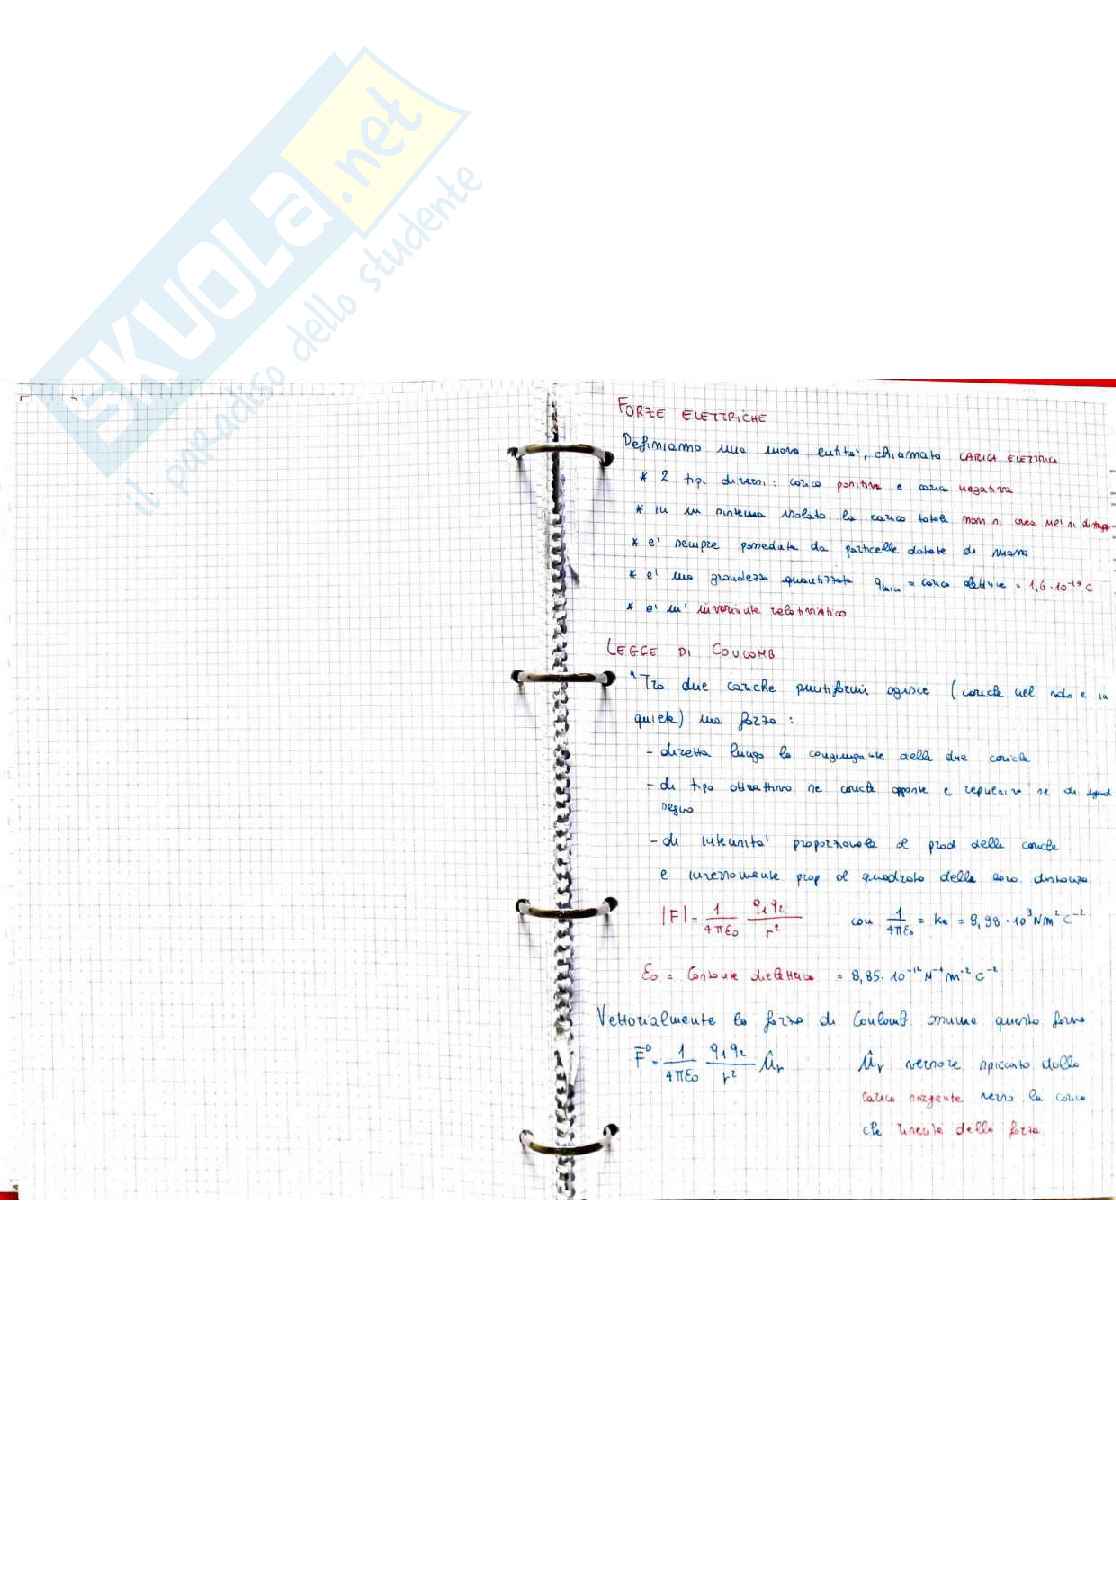 SKUOLA.net
il paradiso dello studente
FORZE ELETTRICHE
Definiamo una nuova entità, chiamata CARICA ELETTRICA
* 2 tipi diversi: carica positiva e carica negativa
* in un sistema isolato la carica totale non si crea nè si distrugge
* e' sempre posseduta da particelle dotate di massa
* e' una grandezza quantizzata qmin = carica elettrone = 1,6·10⁻¹⁹ C
* e' un' invariante relativistico
LEGGE DI COULOMB
"Tra due cariche puntiformi agisce (cariche nel vuoto e in
quiete) una forza:
- diretta lungo la congiungente delle due cariche
- di tipo attrattivo se cariche opposte e repulsivo se di
segno
- di intensita' proporzionale al prod delle cariche
e inversamente prop al quadrato della loro distanza
|F| = 1/4πε₀ q₁q₂/r² con 1/4πε₀ = ke = 8,98·10⁹ Nm²C⁻²
ε₀ = Costante dielettrica = 8,85·10⁻¹² N⁻¹m⁻²C⁻²
Vettorialmente la forza di Coulomb assume questa forma
F = 1/4πε₀ q₁q₂/r² ûr ûr versore spiccato dalla
carica sorgente verso la carica
che risente della forza